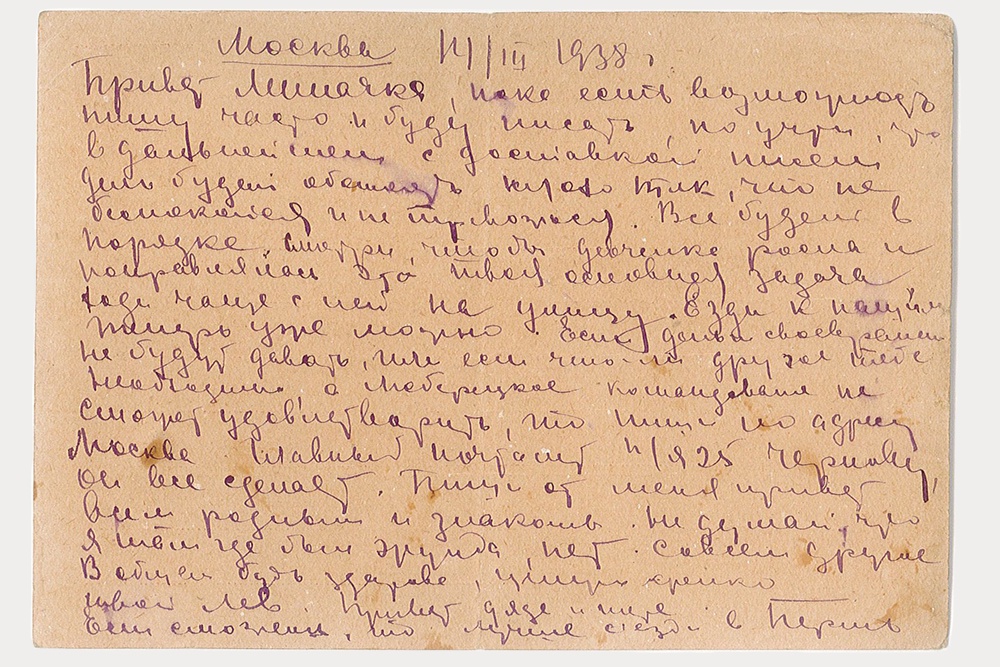 Москва 14/III 1938 г.
Привет Миначка, пока есть возможность
пишу часто и буду писать, но учти, что
в дальнейшем с доставкой писем
дело будет обстоять так, что не
беспокойся и не тревожься. Все будет в
порядке. смотри, чтобы девченка росла и
поправлялась это твоя основная задача
ходи чаще с ней на улицу. Езди к нашим
теперь уже можно Если деньги своевремен
не будут давать, или если что-ли другое тебе
необходимо а командование не
сможет удовлетворить, то пиши по адресу
Москва Главный почтамт п/я 25 Чернову,
он все сделает. Пиши от меня привет
всем родным и знакомым. Не думай, что
я там где был эрунда, нет. Совсем другое
В общем будь здорова, целую крепко
твой Лев. Привет дяде и
Если сможешь, то лучше съезди в Пермь